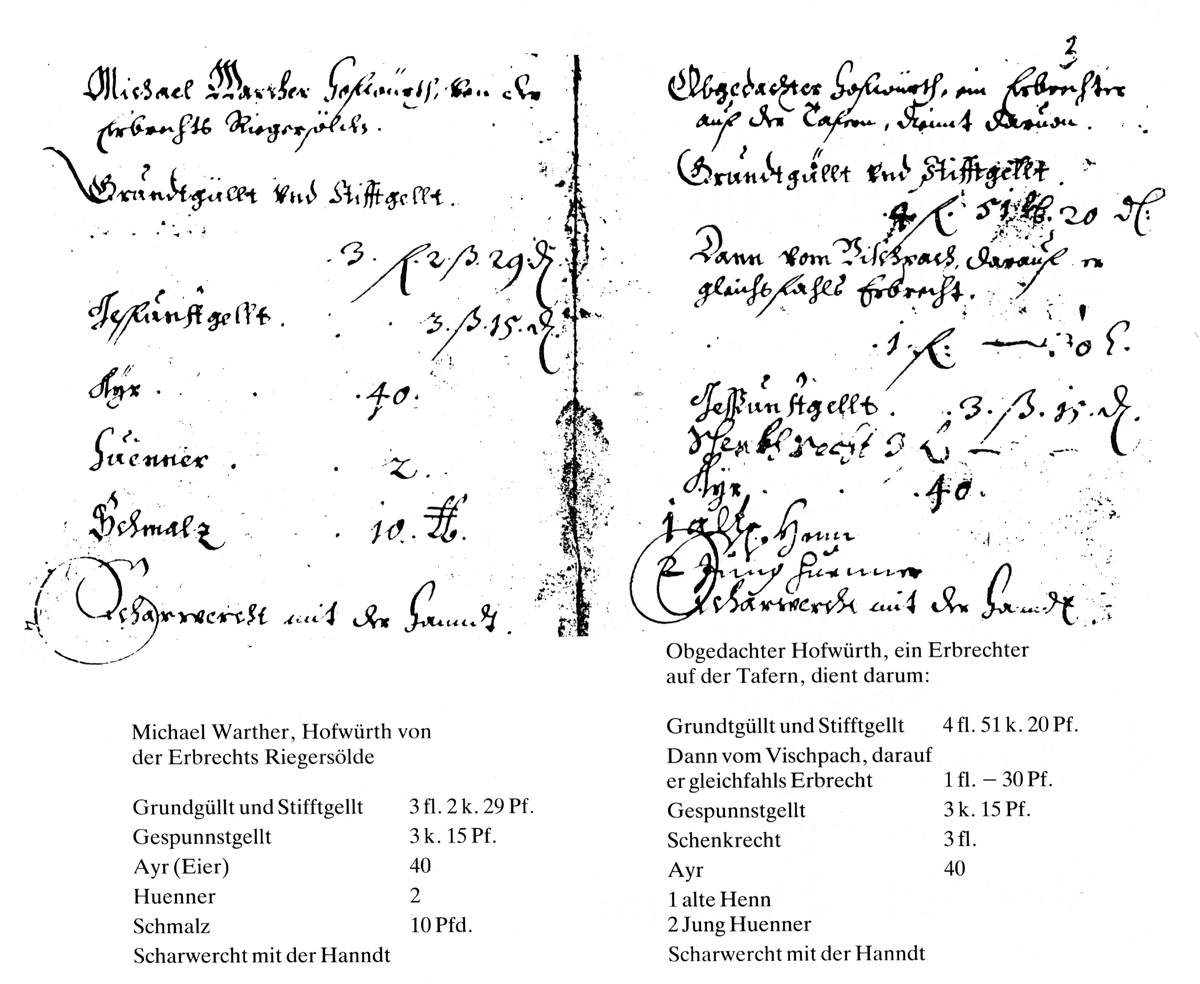 Michael Warther Hofwürth, von der
Erbrechts Riegersöldn.
Grundtgüllt vnd Stifftgellt.
3. fl. 2. ß. 29 d.
Gespunstgellt. 3. ß. 15. d.
Ayr. 40.
Huenner. 2.
Schmalz. 10. ℔.
Scharwercht mit der Hanndt.
2
Obgedachter Hofwürth, ein Erbrechter
auf der Tafern, diennt daruon.
Grundtgüllt vnd Stifftgellt.
fl. 51 20 dl:
Dann vom Vischpach, darauf er
gleichsfahls Erbrecht.
1. fl: — 30
Gespunstgellt. 3. ß. 15. d.
Schenkhrecht 3 — —
Ayr. 40.
1 alte Henn
2 Jung huenner
Scharwercht mit der Handt.
Michael Warther, Hofwürth von
der Erbrechts Riegersölde
Grundgüllt und Stifftgellt 3 fl. 2 k. 29 Pf.
Gespunnstgellt 3 k. 15 Pf.
Ayr (Eier) 40
Huenner 2
Schmalz 10 Pfd.
Scharwercht mit der Hanndt
Obgedachter Hofwürth, ein Erbrechter
auf der Tafern, dient darum:
Grundtgüllt und Stifftgellt 4 fl. 51 k. 20 Pf.
Dann vom Vischpach, darauf
er gleichfahls Erbrecht 1 fl. – 30 Pf.
Gespunnstgellt 3 k. 15 Pf.
Schenkrecht 3 fl.
Ayr 40
1 alte Henn
2 Jung Huenner
Scharwercht mit der Hanndt